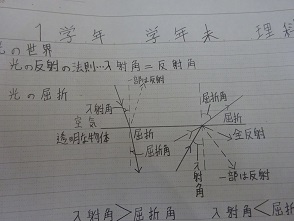 1学年 学年末 理科
光の世界
光の反射の法則…入射角=反射角
光の屈折
入射角
一部は反射
空気
透明な物体
屈折
屈折角
屈折角
屈折
全反射
入射角
一部は反射
入射角>屈折角 入射角<屈折